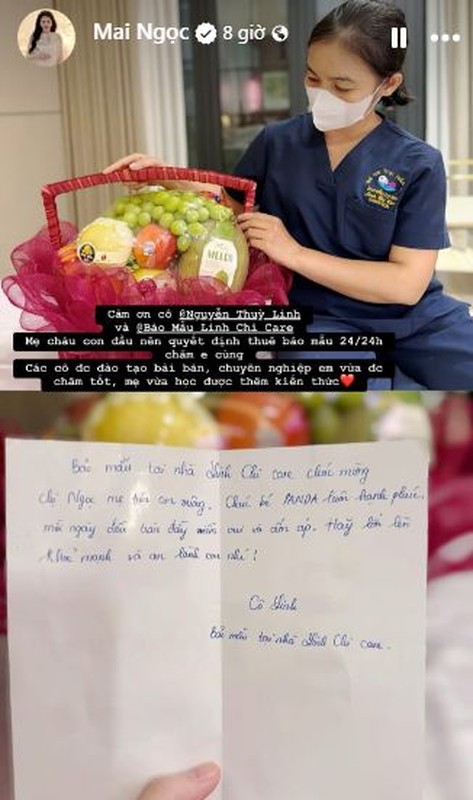 Mai Ngọc 8 giờ
Cảm ơn cô @Nguyễn Thuỳ Linh
và @Bảo Mẫu Linh Chi Care
Mẹ cháu con đầu nên quyết định thuê bảo mẫu 24/24h
chăm e cùng
Các cô dc đào tạo bài bản, chuyên nghiệp em vừa dc
chăm tốt, mẹ vừa học được thêm kiến thức❤️
MELON
Bảo mẫu tại nhà Linh Chi care chúc mừng
chị Ngọc mẹ tròn con vuông. Chúc bé PANDA luôn hạnh phúc,
mỗi ngày đều tràn đầy niềm vui và ấm áp. Hãy lớn lên
khoẻ mạnh và an lành con nhé!
Cô Linh
Bảo mẫu tại nhà Linh Chi care.